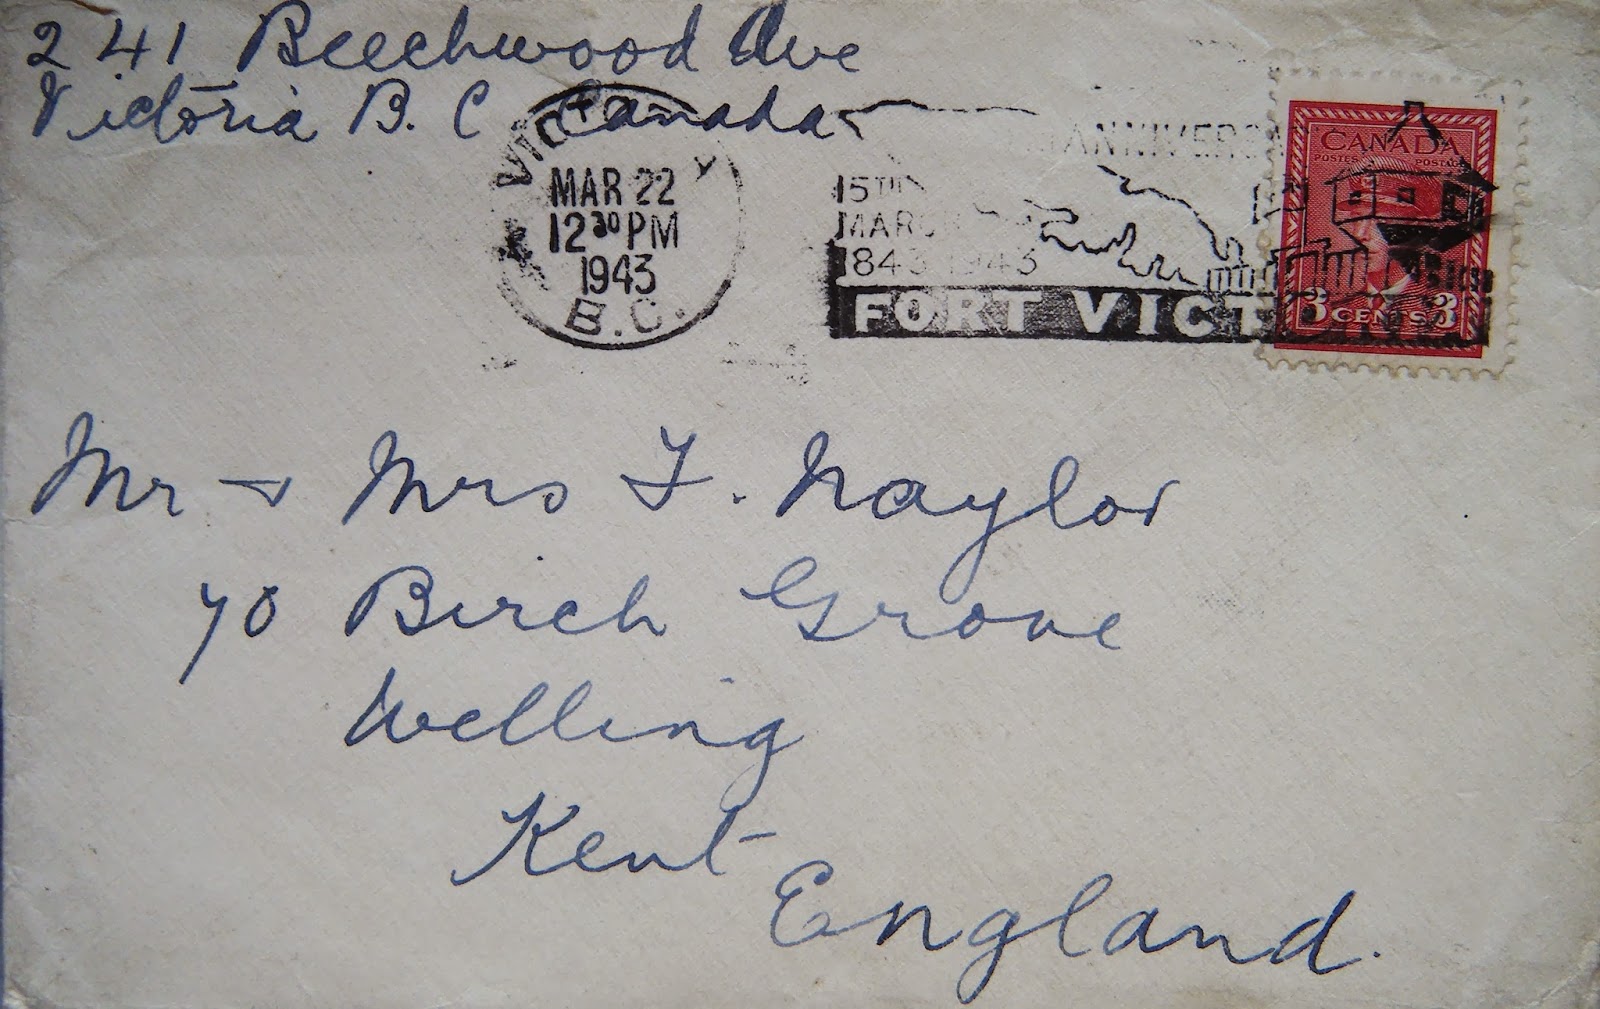 241 Beechwood Ave
Victoria B. C Canada
VICTO
MAR 22
12 30 PM
1943
B.C.
ANNIVERSA
15TH
MARCH
1843 1943
FORT VICT
CANADA
POSTES POSTAGE
3 CENTS 3
Mr & Mrs F. Naylor
70 Birch Grove
Welling
Kent
England.